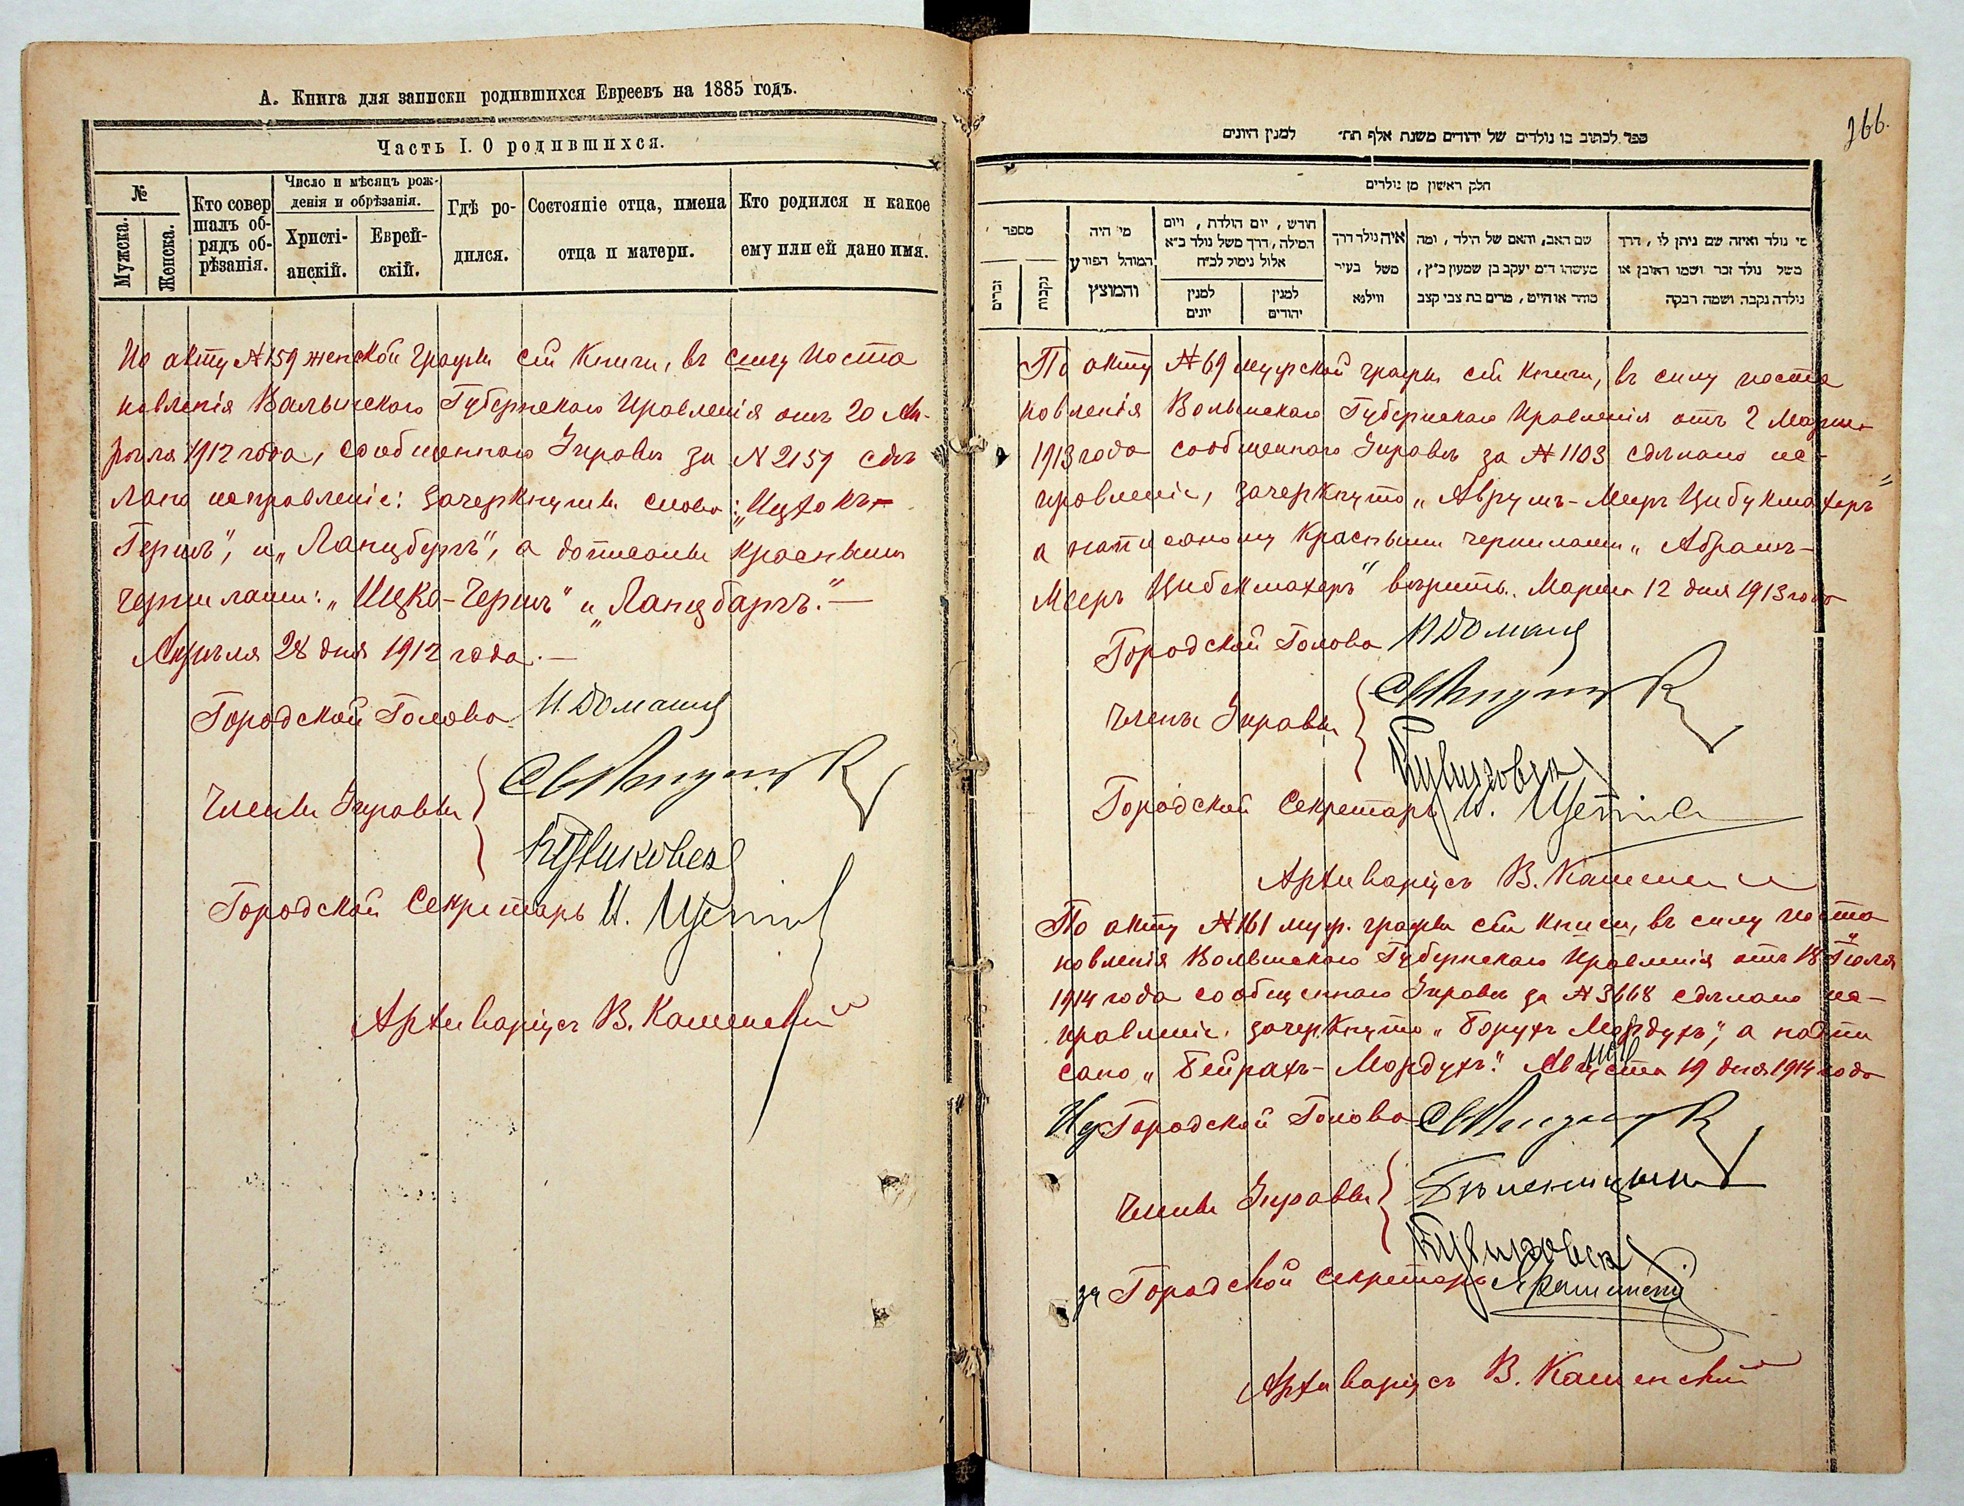 А. Книга для записки родившихся Евреевъ на 1885 годъ.
Часть I. О родившихся.
№
Мужска.
Женска.
Кто совер
шалъ об-
рядъ об-
рѣзанія.
Число и мѣсяцъ рож-
денія и обрѣзанія.
Христі-
анскій.
Еврей-
скій.
Гдѣ ро-
дился.
Состояніе отца, имена
отца и матери.
Кто родился и какое
ему или ей дано имя.
По акту №159 женской графы сей Книги, въ силу поста
новленія Волынскаго Губернскаго Правленія отъ 20 Ап-
рѣля 1912 года, сообщеннаго Управѣ за №2159 сдѣ
лано исправленіе: зачеркнуты слова: „Ицхокъ-
Гершъ", и „Ланцбургъ", а дописаны красными
чернилами: „Ицко-Гершъ" и „Ланцбаргъ." —
Апрѣля 28 дня 1912 года. —
Городской Голова
Члены Управы
Городской Секретарь
Архиваріусъ В. Каменскій
266.
ספר לכתוב בו נולדים של יהודים משנת אלף תת׳ למנין היונים
חלק ראשון מן נולדים
מספר
זכרים
נקבות
מי היה
המוהל הפורע
והמוצץ
חודש, יום הולדת, ויום
המילה, דרך משל נולד כ״א
אלול נימול לכ״ח
למנין
יונים
למנין
יהודים
איה נולד דרך
משל בעיר
ווילנא
שם האב, והאם של הילד, ומה
מעשהו ד״מ יעקב בן שמעון כ״ץ,
סוחר או חייט, מרים בת צבי קצב
מי נולד ואיזה שם ניתן לו, דרך
משל נולד זכר ושמו ראובן או
נולדה נקבה ושמה רבקה
По акту №69 мужской графы сей Книги, въ силу поста
новленія Волынскаго Губернскаго Правленія отъ 2 Марта
1913 года сообщеннаго Управѣ за №1103 сдѣлано ис-
правленіе, зачеркнуто „Аврумъ-Меръ Цибукмахеръ"
а написанному красными чернилами „Абрамъ-
Мееръ Цибекмахеръ" вѣрить. Марта 12 дня 1913 года
Городской Голова
Члены Управы
Городской Секретарь
Архиваріусъ В. Каменскій
По акту №161 муж. графы сей Книги, въ силу поста
новленія Волынскаго Губернскаго Правленія отъ 18 Іюля
1914 года сообщеннаго Управѣ за №3668 сдѣлано ис-
правленіе, зачеркнуто „Борухъ Мордухъ", а напи
сано „Бейрахъ-Мордухъ." Августа 19 дня 1914 года
Ид Городской Голова
Члены Управы
за Городской Секретарь
Архиваріусъ В. Каменскій